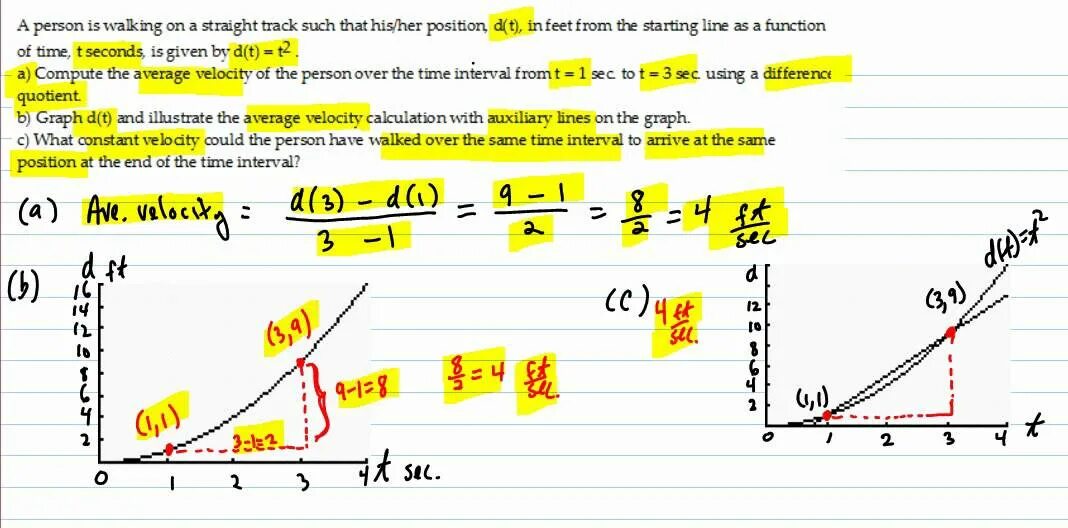 A person is walking on a straight track such that his/her position, d(t), in feet from the starting line as a function
of time, t seconds, is given by d(t) = t².
a) Compute the average velocity of the person over the time interval from t = 1 sec. to t = 3 sec. using a difference
quotient.
b) Graph d(t) and illustrate the average velocity calculation with auxiliary lines on the graph.
c) What constant velocity could the person have walked over the same time interval to arrive at the same
position at the end of the time interval?
(a) Ave. velocity = d(3) - d(1) / 3 - 1 = 9 - 1 / 2 = 8/2 = 4 ft/sec
(b)
d ft
16
14
12
10
8
6
4
2
0 1 2 3 4 t sec.
(1,1)
(3,9)
3-1=2
9-1=8
8/2 = 4 ft/sec.
(c) 4 ft/sec.
d
12
10
8
6
4
2
0 1 2 3 4 t
(1,1)
(3,9)
d(t)=t²